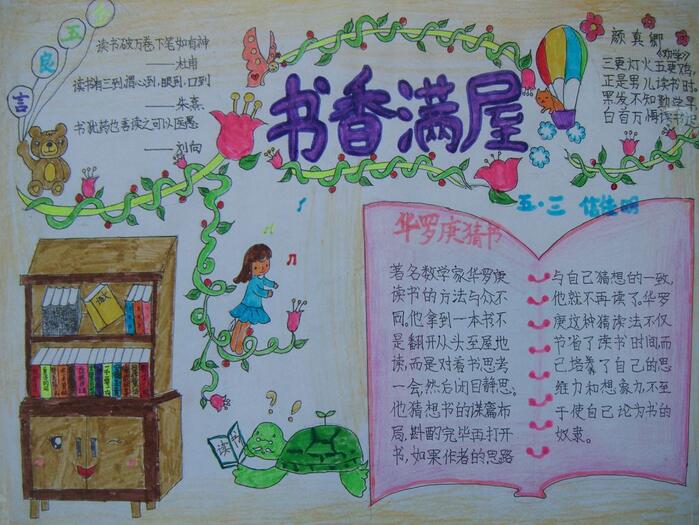 名言良五
读书破万卷下笔如有神
——杜甫
读书有三到,谓心到,眼到,口到
——朱熹
书犹药也善读之可以医愚
——刘向
书香满屋
颜真卿
《劝学》
三更灯火五更鸡
正是男儿读书时
黑发不知勤学早
白首方悔读书迟
五·三
华罗庚猜书
著名数学家华罗庚
读书的方法与众不
同。他拿到一本书不
是翻开从头至尾地
读,而是对着书思考
一会,然后闭目静思。
他猜想书的谋篇布
局,斟酌完毕再打开
书,如果作者的思路
与自己猜想的一致,
他就不再读了。华罗
庚这种猜读法不仅
节省了读书时间,而
己培养了自己的思
维力和想象力,不至
于使自己沦为书的
奴隶。
读书